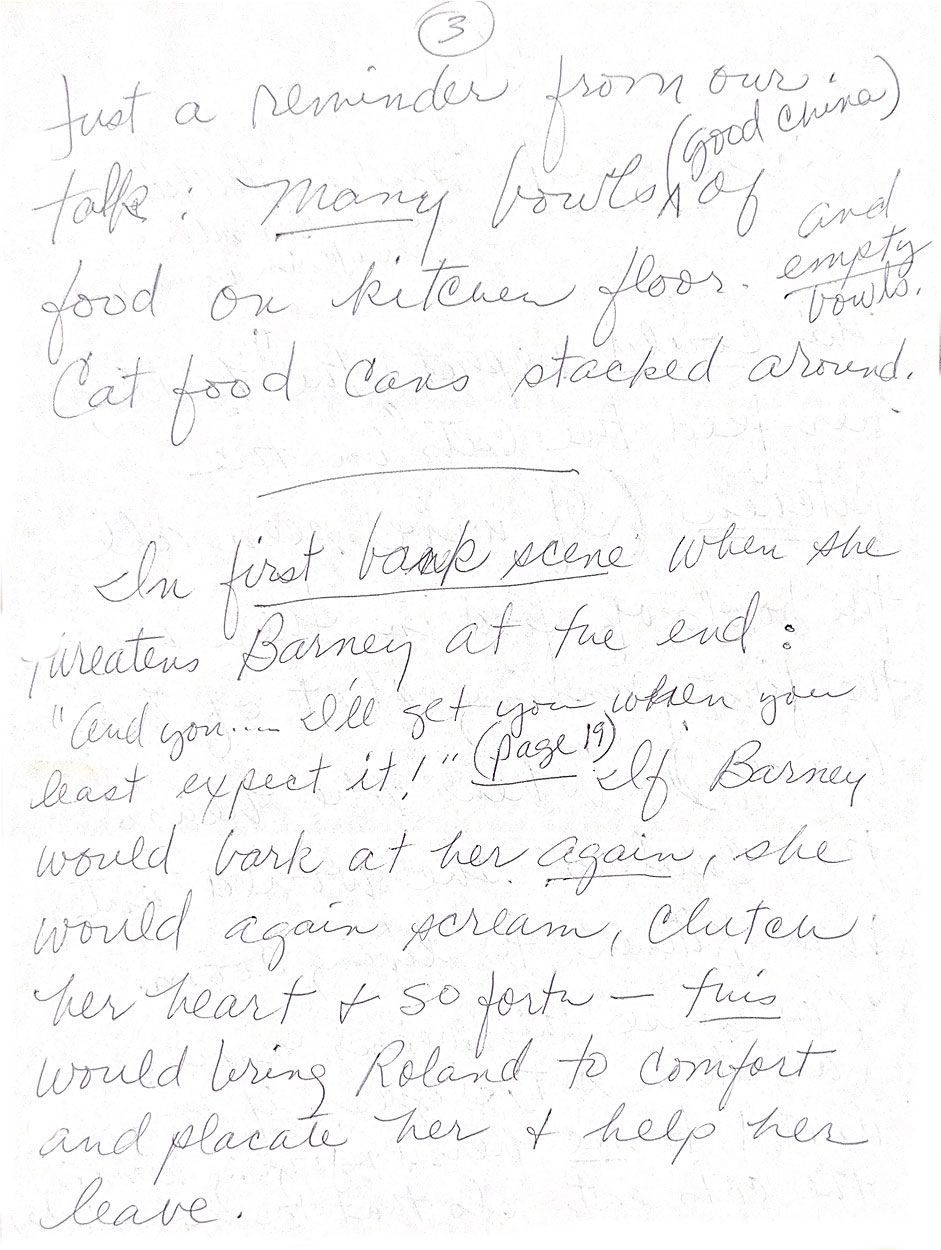 3
Just a reminder from our
talk: Many bowls (good china) of
food on kitchen floor. and empty bowls.
Cat food cans stacked around.
In first bank scene when she
threatens Barney at the end:
"And you.... I'll get you when you
least expect it!" (page 19) If Barney
would bark at her again, she
would again scream, clutch
her heart + so forth — this
would bring Roland to comfort
and placate her + help her
leave.